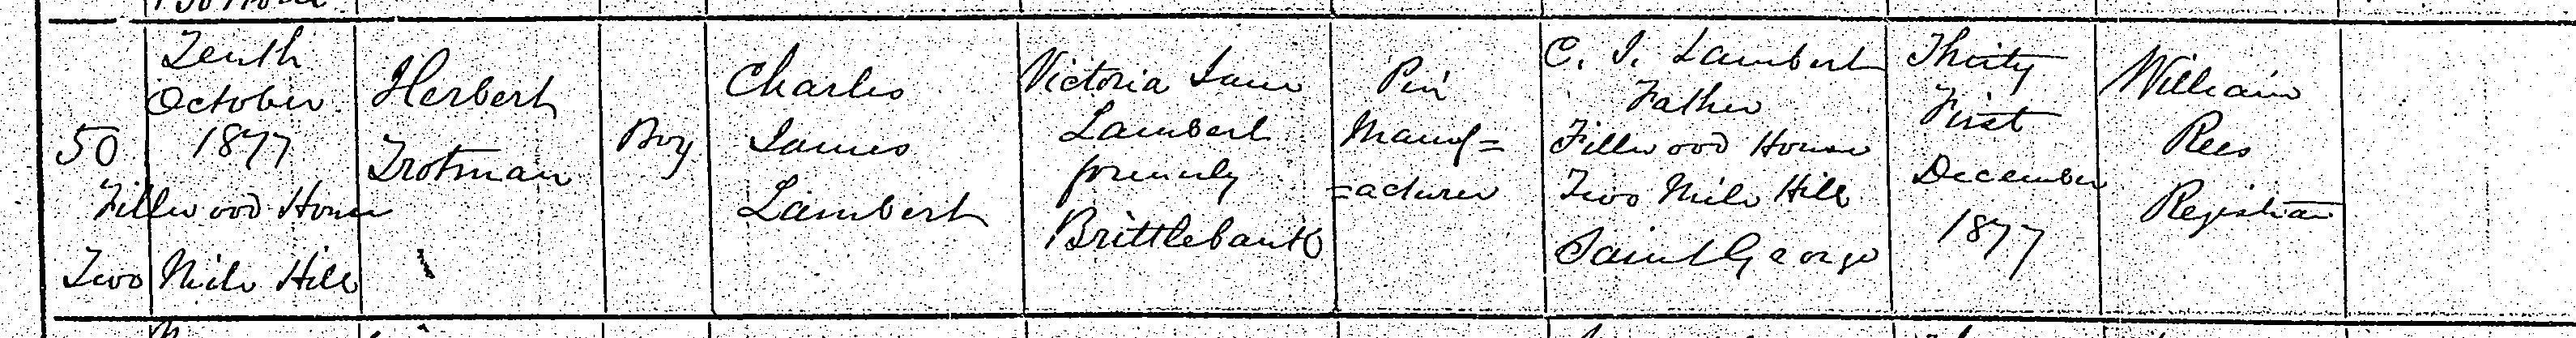 50
Tenth
October
1877
Fillwood House
Two Mile Hill
Herbert
Trotman
Boy
Charles
James
Lambert
Victoria Jane
Lambert
formerly
Brittlebank
Pin
Manuf=
=acturer
C. J. Lambert
Father
Fillwood House
Two Mile Hill
Saint George
Thirty
First
December
1877
William
Rees
Registrar